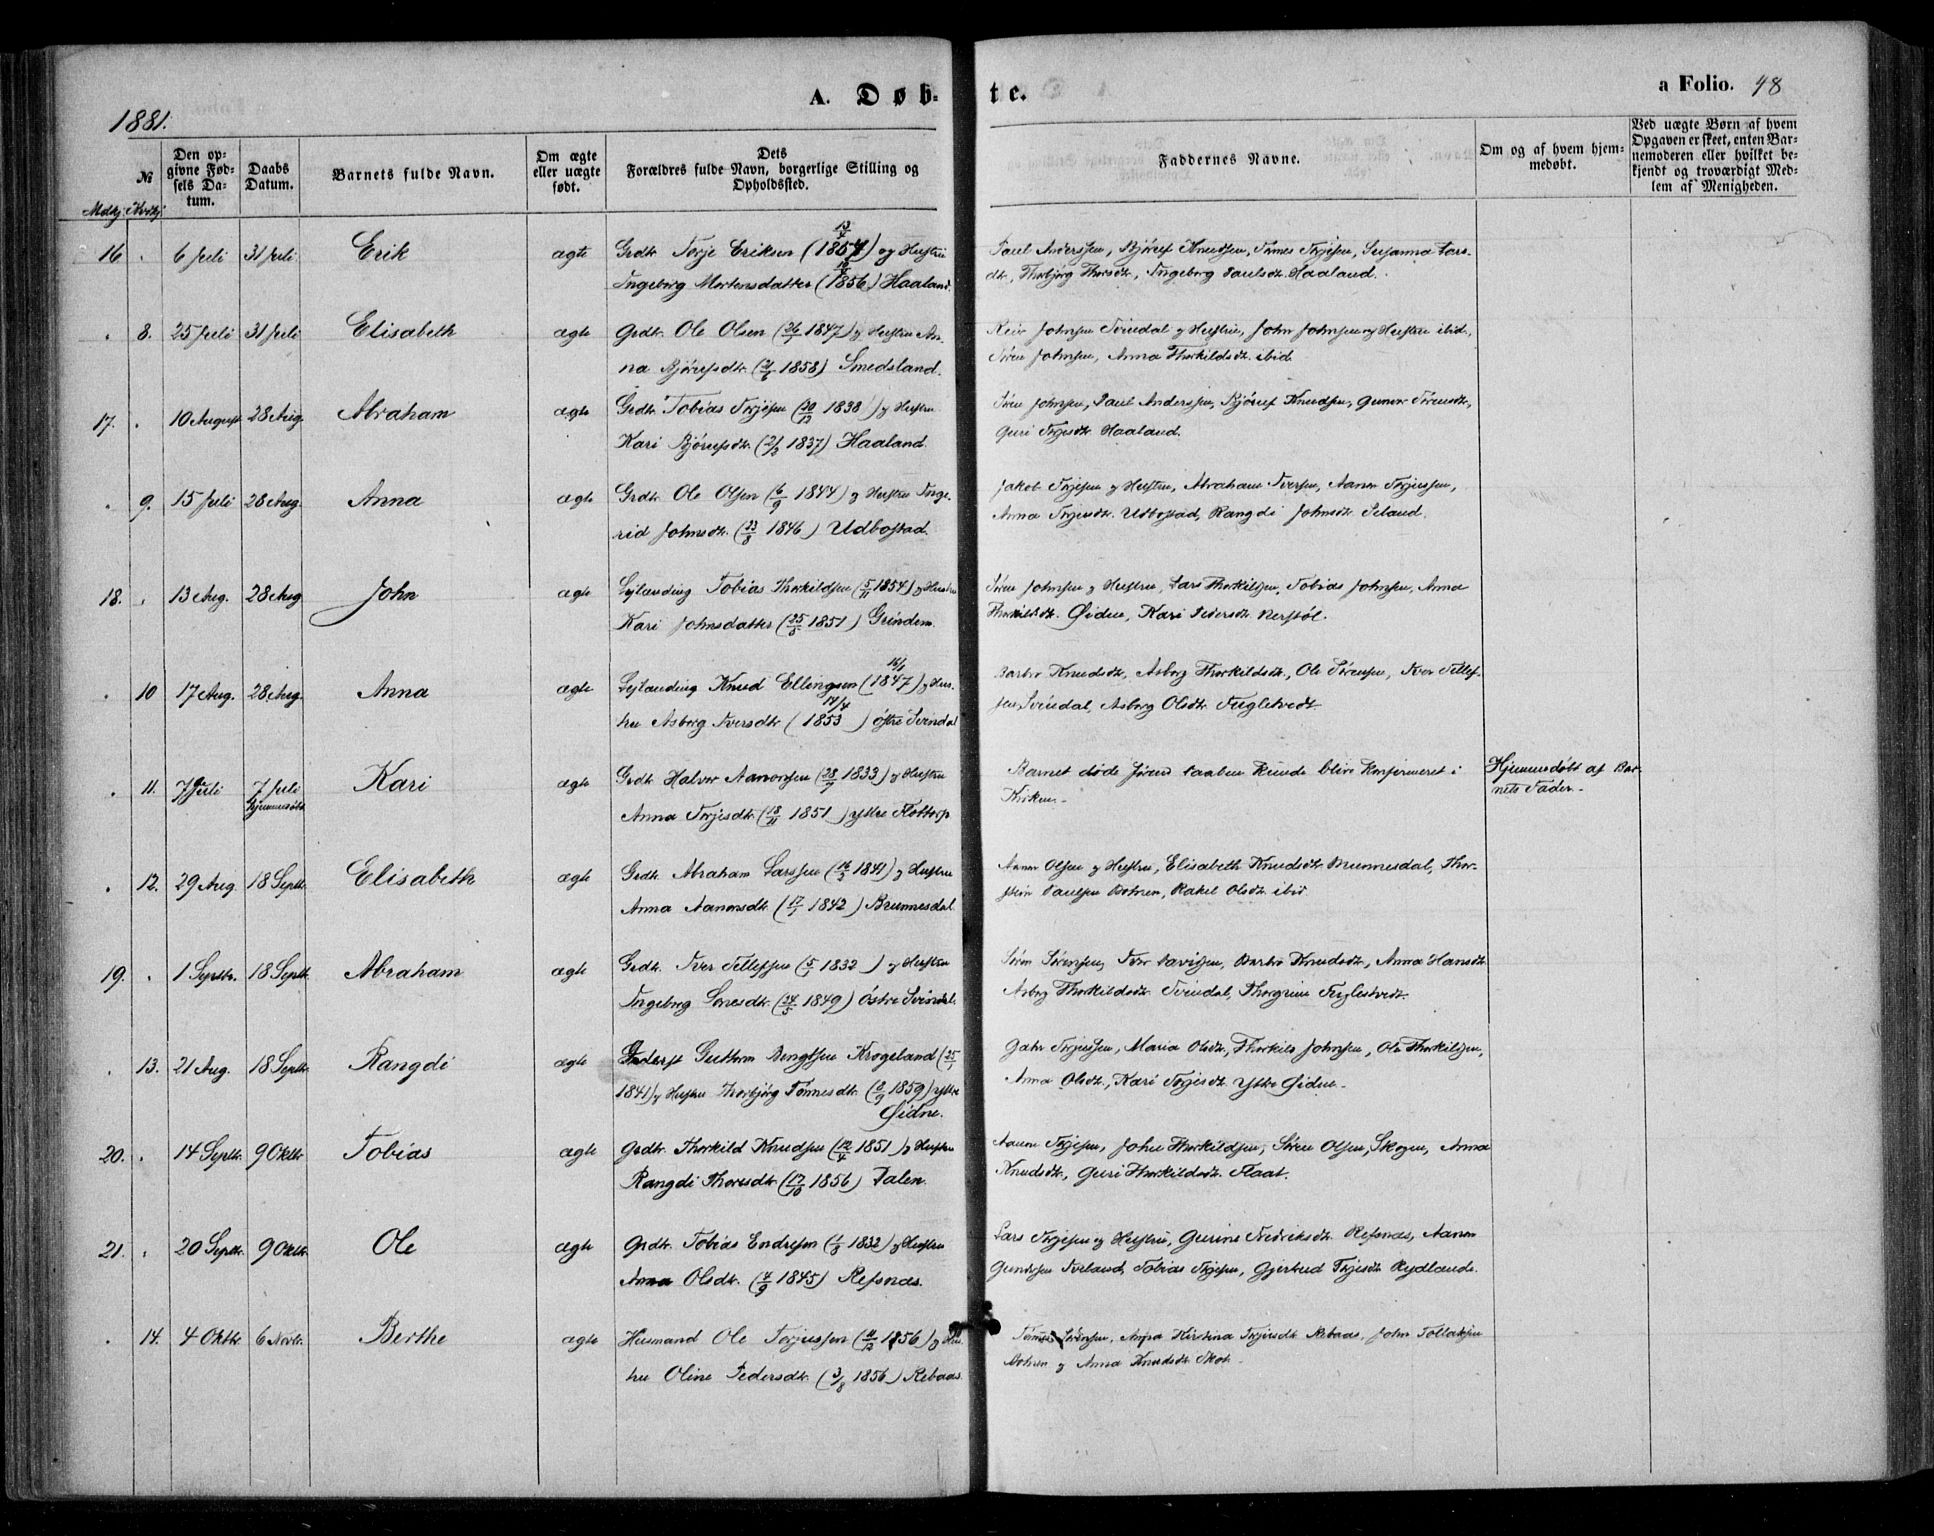 A. Døb-
te.
a Folio. 48
1881.
№
Mdkj. Kvdkj.
Den op-
givne Fød-
sels Da-
tum.
Daabs
Datum.
Barnets fulde Navn.
Om ægte
eller uægte
født.
Dets
Forældres fulde Navn, borgerlige Stilling og
Opholdssted.
Faddernes Navne.
Om og af hvem hjem-
medøbt.
Ved uægte Børn af hvem
Opgaven er skeet, enten Bar-
nemoderen eller hvilket be-
kjendt og troværdigt Med-
lem af Menigheden.
16 . 6 Juli 31 Juli Erik ægte Grdr. Terje Eriksen (13/4 1854) og Hustru
Ingeborg Mortensdatter (1856) Haaland.
Paul Anderssen, Bjørulf Knudsen, Tønes Terjesen, Susanna Lars-
dtr, Thorbjørg Thorsdtr, Ingeborg Paulsdtr Haaland.
. 8. 25 Juli 31 Juli Elisabeth ægte Grdr. Ole Olsen (26/7 1847) og Hustru An-
na Bjørulfsdtr. (2/6 1858) Smedsland.
Reier Johnsen Svindal og Hustru, John Johnsen og Hustru ibid,
Sören Johnsen, Anna Thorkildsdtr. ibid.
17. . 10 August 28 Aug. Abraham ægte Grdr. Tobias Terjesen (30/12 1838) og Hustru
Kari Bjørulfsdtr. (21/2 1837) Haaland.
Sören Johnsen, Paul Anderssen, Bjørulf Knudsen, Gunvor Sörensdtr.,
Guri Terjesdtr. Haaland.
. 9. 15 Juli 28 Aug. Anna ægte Grdr. Ole Olsen (6/9 1844) og Hustru Inge-
rid Johnsdtr. (23/8 1846) Udbostad.
Jakob Terjesen og Hustru, Abraham Iversen, Aanon Terjussen,
Anna Terjesdtr. Udbostad, Rangdi Johnsdtr. Seland.
18. . 13 Aug. 28 Aug John ægte Leilænding Tobias Thorkildsen (5/11 1854) og Hustru
Kari Johnsdatter (25/5 1851) Grindem.
Sören Johnsen og Hustru, Lars Thorkildsen, Tobias Johnsen, Anna
Thorkildsdtr. Øidne, Kari Pedersdtr. Nerstöl.
. 10 17 Aug. 28 Aug. Anna ægte Leilænding Knud Ellingsen (16/1 1847) og Hus-
tru Asborg Iversdtr. (17/4 1853) Østre Svindal
Barbro Knudsdtr, Asborg Thorkildsdtr., Ole Sörensen, Iver Tellef-
sen Svindal, Asborg Olsdtr. Fuglestvedt.
. 11. 7 Juli 7 Juli
Hjemmedøbt Kari ægte Grdr. Halvor Aanonsen (28/9 1833) og Hustru
Anna Terjesdtr. (18/11 1851) Ytre Flottorp
Barnet døde førend Daaben kunde blive konfirmeret i
Kirken.
Hjemmedøbt af Bar-
nets Fader.
. 12. 29 Aug. 18 Septbr. Elisabeth ægte Grdr. Abraham Larssen (16/3 1841) og Hustru
Anna Aanonsdtr. (17/1 1842) Brunnesdal
Aanon Olsen og Hustru, Elisabeth Knudsdtr. Brunnesdal, Thor-
stein Paulsen Bohnen, Rakel Olsdtr. ibid.
19. . 1 Septbr. 18 Septbr. Abraham ægte Grdr. Iver Tellefsen (5/1 1832) og Hustru
Ingeborg Sörensdtr. (24/5 1849) Østre Svindal.
Sören Sörensen, Iver Davidsen, Barbro Knudsdtr., Anna Hansdtr.
Asborg Thorkildsdtr. Svindal, Thorgrim Fuglestvedt.
. 13. 21 Aug. 18 Septbr. Rangdi ægte Guttorm Bengtsen Krogeland (25/1
1841) og Hustru Thorbjørg Tönnesdtr. (2/9 1859) Ytre
Øidne.
Terjessen, Maria Olsdtr., Thorkild Johnsen, Ole Thorkildsen,
Anna Olsdtr., Kari Terjesdtr. Ytre Øidne.
20. . 14 Septbr. 9 Oktbr. Tobias ægte Grdr. Thorkild Knudsen (12/4 1851) og Hustru
Rangdi Thoresdtr. (17/10 1856) Dalen.
Aanon Terjesen, John Thorkildsen, Sören Olsen, Skogen, Anna
Knudsdtr., Guri Thorkildsdtr. Flaat.
21. . 20 Septbr. 9 Oktbr. Ole ægte Grdr. Tobias Endresen (1/3 1832) og Hustru
Anna Olsdtr. (4/9 1845) Refsnæs.
Lars Terjesen og Hustru, Gurine Fredriksdtr. Refsnæs, Aanon
Gundersen Tveland, Tobias Terjesen, Gjertrud Terjesdtr. Rydlande.
. 14. 4 Oktbr. 6 Novbr. Berthe ægte Husmand Ole Terjussen (11/12 1856) og Hus-
tru Oline Pedersdtr. (3/8 1856) Rebaas.
Tönnes Sörensen, Kirstina Terjesdtr. Rebaas, John Tollaksen
Bohnen og Anna Knudsdtr. Skot.